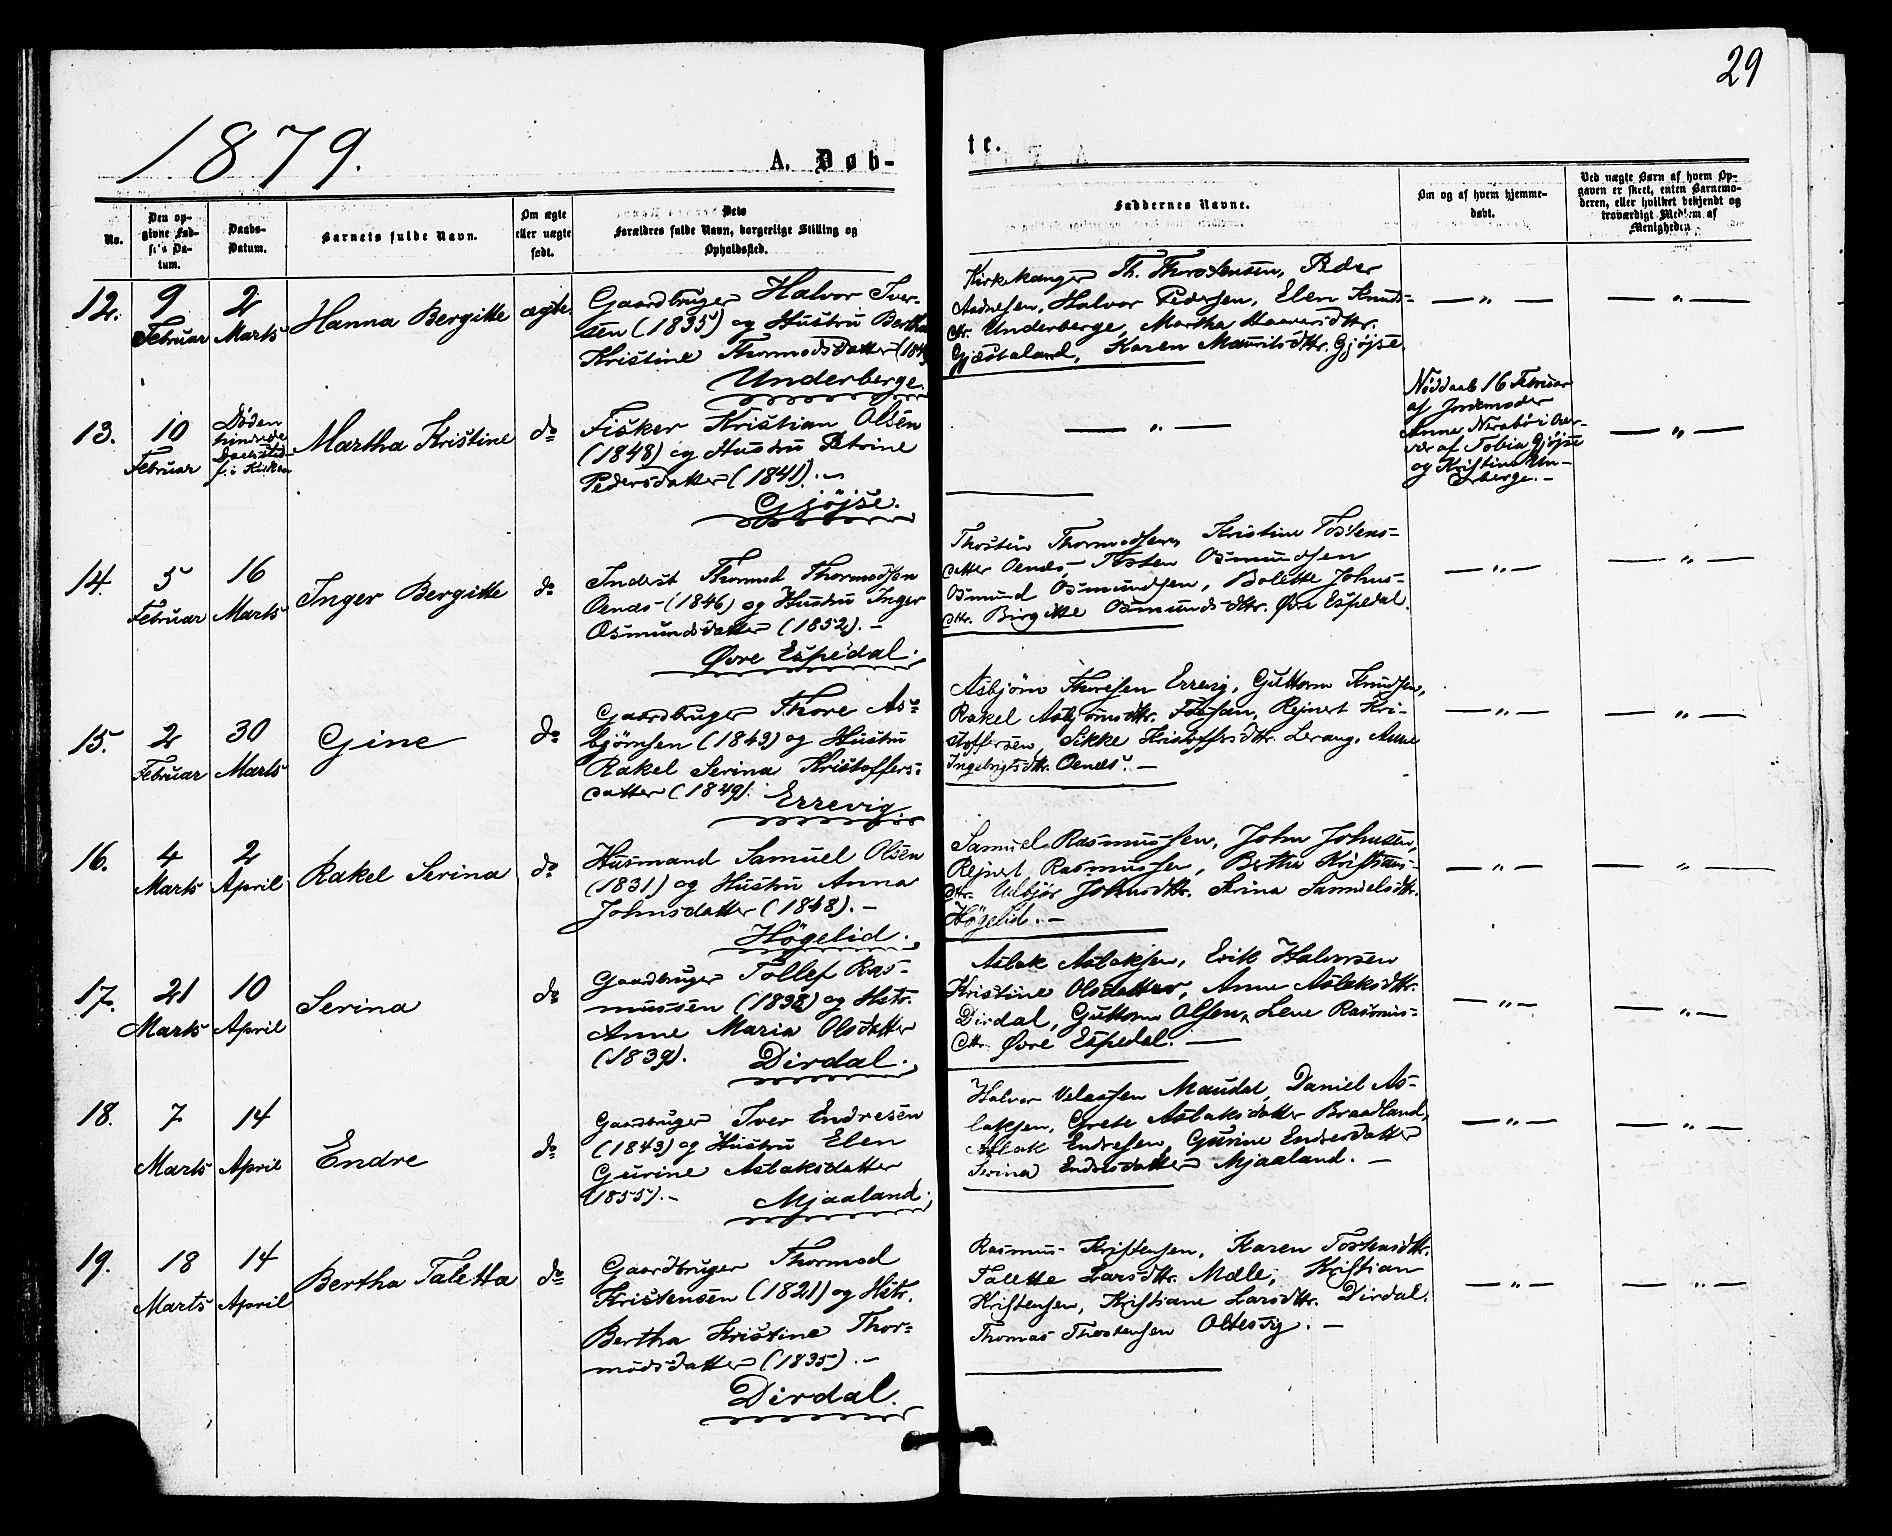 29
1879.
A. Døb-
te.
No.
Den op-
givne Fød-
sels Da-
tum.
Daabs-
Datum.
Barnets fulde Navn.
Om ægte
eller uægte
født.
Dets
Forældres fulde Navn, borgerlige Stilling og
Opholdssted.
Faddernes Navne.
Om og af hvem hjemme-
døbt.
Ved uægte Børn af hvem Op-
gaven er skeet, enten Barnemo-
deren, eller hvilket bekjendt og
troværdigt Medlem af
Menigheden.
12.
9
Februar
2
Marts
Hanna Bergitte
ægte
Gaardbruger Halvor Iver-
sen (1835) og Hustru Bertha
Kristine Thormodsdatter
Underberge.
Kirkesanger Th. Thorstensen, Peder
Andresen, Halvor Pedersen, Elen Knuds-
dtr. Underberge, Martha
Gjøstaland, Karen Mauritsdtr. Gjøjse.
— „ —
— „ —
13.
10
Februar
Døden
hindrede
Daabsted-
f. i Kirken
Martha Kristine
do
Fisker Kristian Olsen
(1848) og Hustru Petrine
Pedersdatter (1841). —
Gjøjse.
— „ —
Nøddaab 16 Februar
af Jordemoder
Anne i Over-
vær af Tobia Gjøjse
og Kristine Un-
derberge. —
— „ —
14.
5
Februar
16
Marts
Inger Bergitte
do
Inderst Thormod Thormodsen
Oenæs (1846) og Hustru Inger
Osmundsdatter (1852). —
Øvre Espedal.
Thosten Thormodsen, Kristine Tostens-
datter Oenæs, Tosten Osmundsen
Osmund Osmundsen, Bolette Johns-
dtr. Birgitte Osmundsdtr. Øvre Espedal.
— „ —
— „ —
15.
2
Februar
30
Marts
Gine
do
Gaardbruger Thore As-
bjørnsen (1843) og Hustru
Rakel Serina Kristoffers-
datter (1849).
Errevig
Asbjørn Thoresen Errevig, Guttorm Knudsen,
Rakel Asbjørnsdtr. Fossan, Rejnert Kri-
stoffersen, Sikke Kristoffersdtr. Lerang, Anne
Ingebrigtsdtr. Oenæs. —
— „ —
— „ —
16.
4
Marts
2
April
Rakel Serina
do
Husmand Samuel Olsen
(1831) og Hustru Anna
Johnsdatter (1848). —
Høgelid.
Samuel Rasmussen, John Johnsen,
Rejnert Rasmussen, Bertha Kristians-
dtr. Johnsdtr. Serina Samuelsdtr.
Høgelid. —
— „ —
— „ —
17.
21
Marts
10
April
Serina
do
Gaardbruger Tollef Ras-
mussen (1838) og Hstr.
Anne Maria Olsdatter
(1839).
Dirdal.
Aslak Aslaksen, Erik Halvorsen
Kristine Olsdatter, Anne Aslaksdtr.
Dirdal, Guttorm Olsen, Lene Rasmus-
dtr. Øvre Espedal. —
— „ —
— „ —
18.
7
Marts
14
April
Endre
do
Gaardbruger Iver Endresen
(1843) og Hustru Elen
Gurine Aslaksdatter
(1855). —
Mjaaland.
Halvor Velassen Maudal, Daniel As-
laksen, Grete Aslaksdatter Braadland,
Aslak Endresen, Gurine Endresdatter
Serina Endresdatter Mjaaland. —
— „ —
— „ —
19.
18
Marts
14
April
Bertha Taletta
do
Gaardbruger Thormod
Kristensen (1821) og Hstr.
Bertha Kristine Thor-
modsdatter (1835). —
Dirdal.
Rasmus Kristensen, Karen Tostensdtr.
Talette Larsdtr. Mæle, Kristian
Kristensen, Kristiane Larsdtr. Dirdal.
Thomas Thostensen Oltesvig. —
— „ —
— „ —